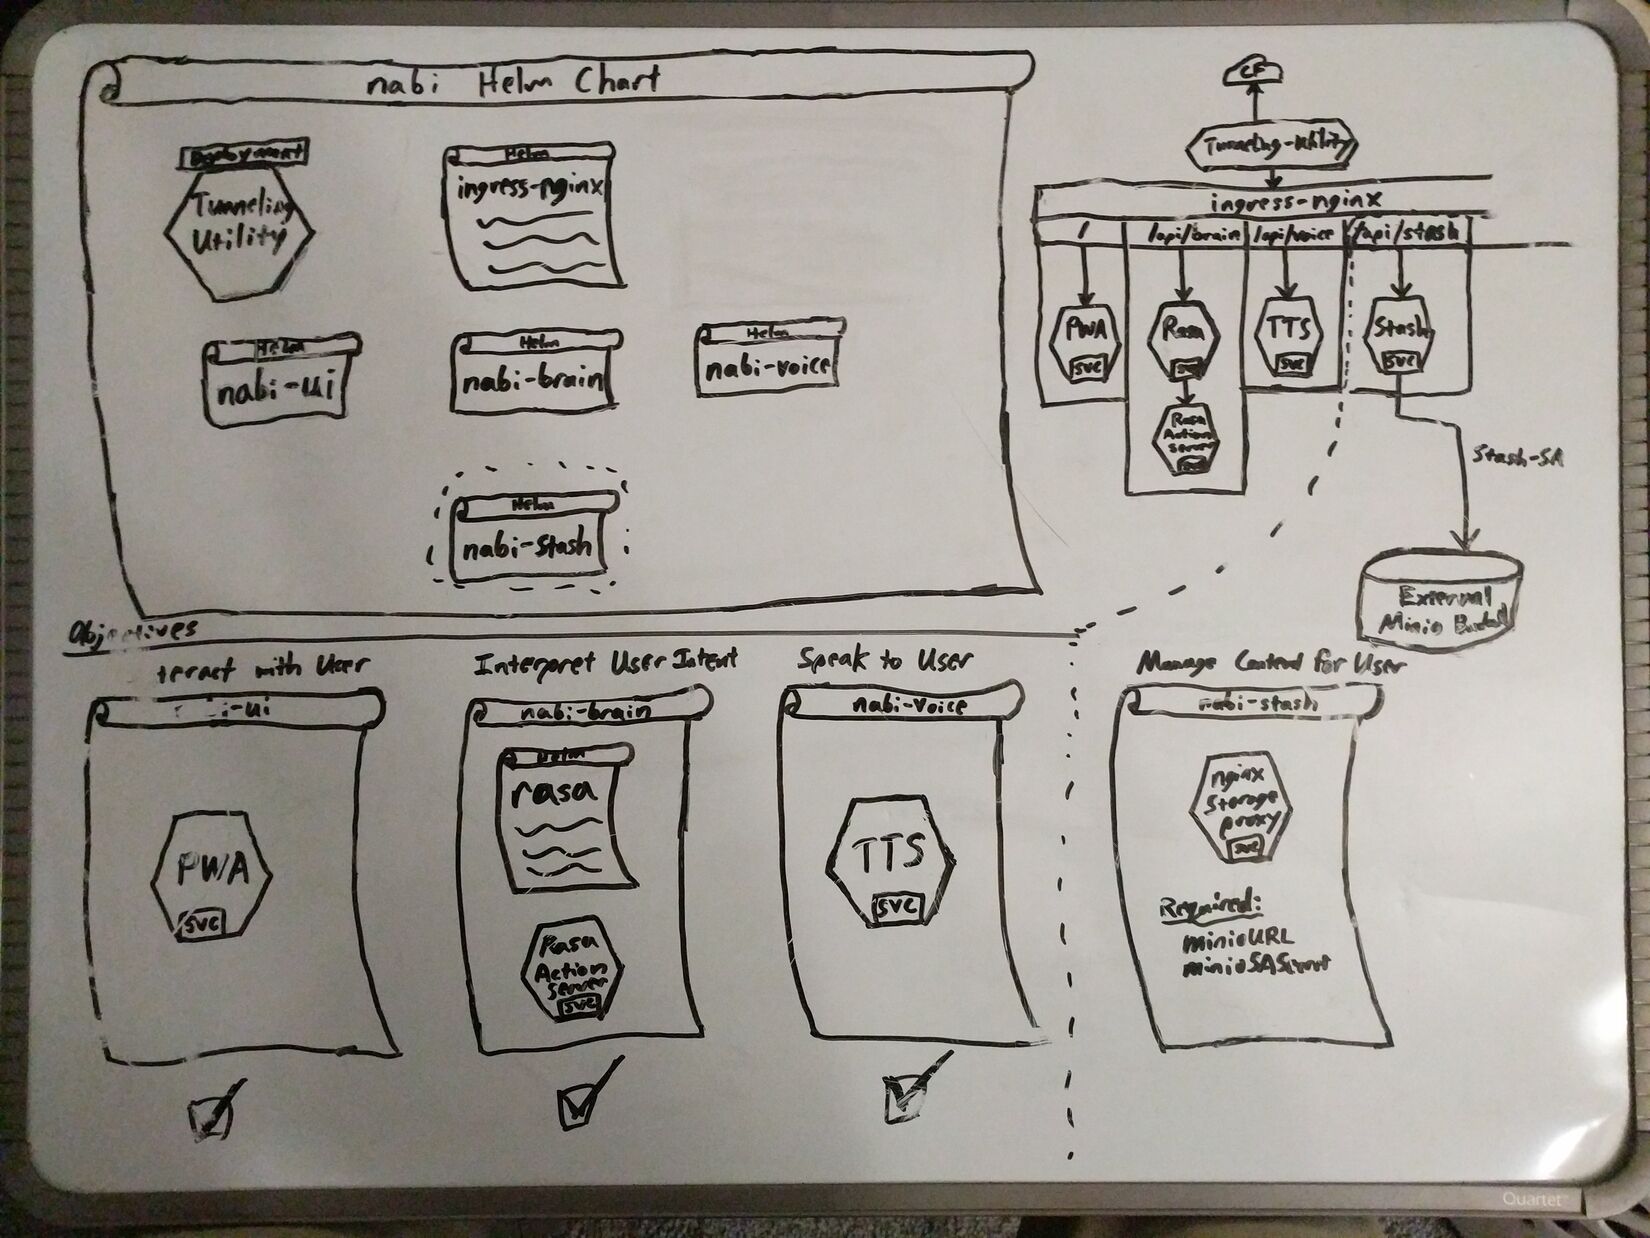 nabi Helm Chart
Deployment
Tunneling
Utility
Helm
ingress-nginx
Helm
nabi-ui
Helm
nabi-brain
Helm
nabi-voice
Helm
nabi-stash
CF
Tunneling-Utility
ingress-nginx
/
/api/brain
/api/voice
/api/stash
PWA
svc
Rasa
svc
TTS
svc
Stash
svc
Rasa
Action
Server
Stash-SA
External
Minio
Objectives
teract with User
i-ui
PWA
svc
Interpret User Intent
nabi-brain
Helm
rasa
Rasa
Action
Server
svc
Speak to User
nabi-voice
TTS
svc
Manage Content for User
nabi-stash
nginx
Storage
proxy
svc
Required:
minioURL
minioSASecret
Quartet